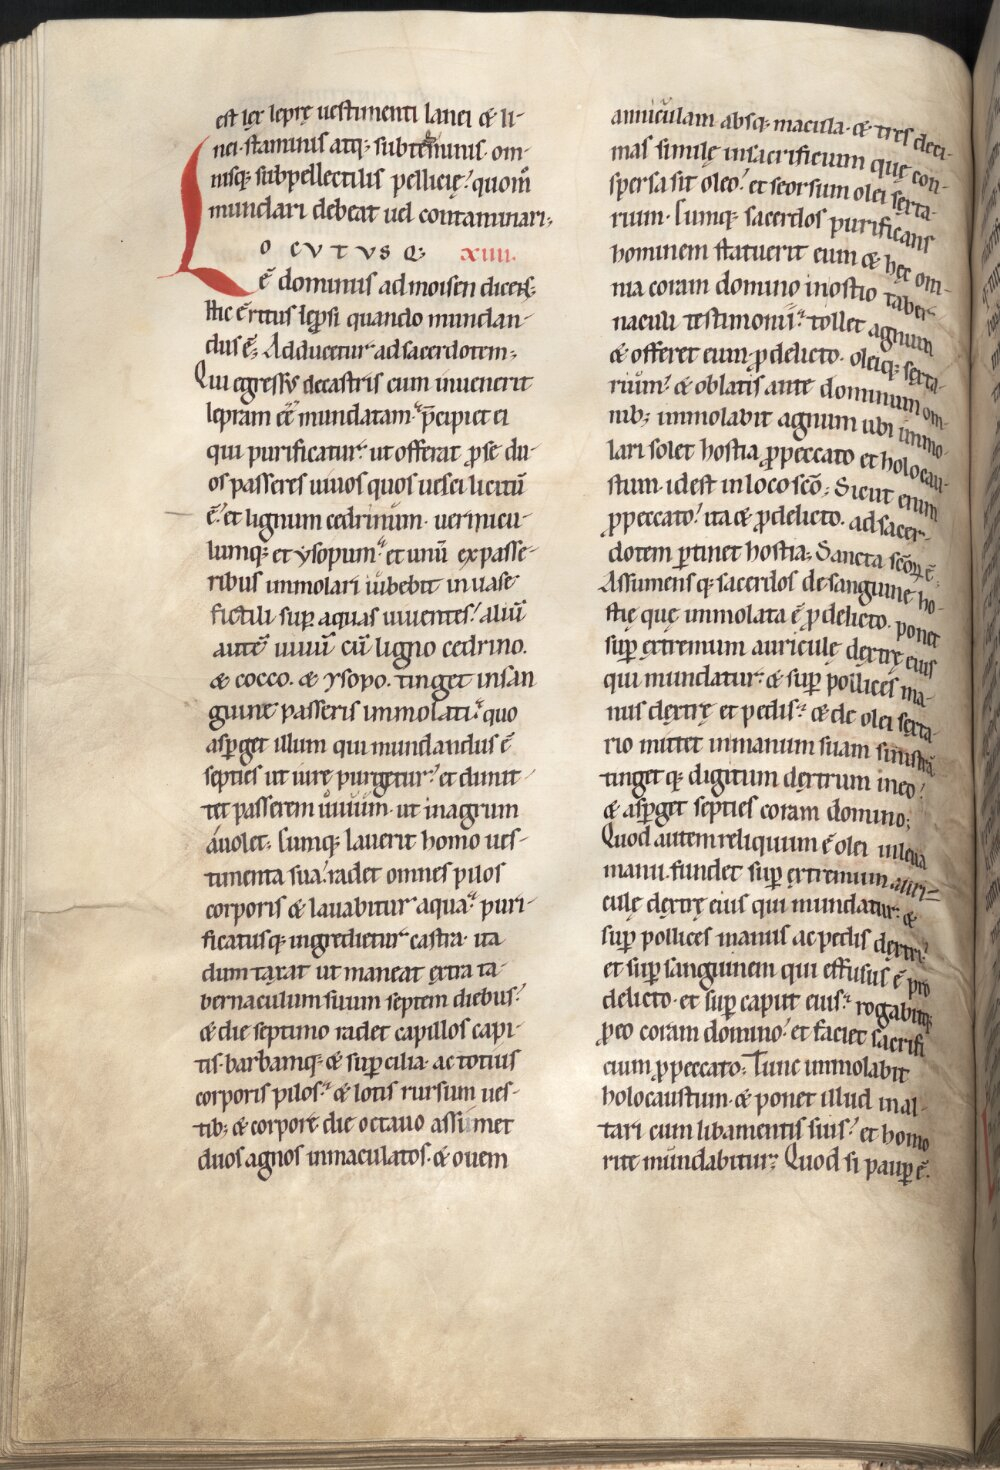 est lex leprę uestimenti lanei & li-
nei. staminis atq; subteminis. om-
nisq; subpellectilis pellicię? quom̄
mundari debeat uel contaminari;
LOCVTVSQ; XIIII.
ē dominus ad moisen dicens;
Hic ē ritus leprosi quando mundan-
dus ē; Adducetur ad sacerdotem;
Qui egressus de castris cum inuenerit
lepram eē mundatam. p̄cipiet ei
qui purificatur. ut offerat ꝓ se du-
os passeres uiuos quos uesci licitū
ē? et lignum cedrinum. uermicu-
lumq; et ysopum. et unū ex passe-
ribus immolari iubebit in uase
fictili suꝑ aquas uiuentes? aliū
autē uiuū cū ligno cedrino.
& cocco. & ysopo. tinget in san
guine passeris immolati. quo
asꝑget illum qui mundandus ē
septies ut iure purgetur? et dimit-
tet passerem uiuum. ut in agrum
auolet; Cumq; lauerit homo ues-
timenta sua? radet omnes pilos
corporis & lauabitur aqua. puri-
ficatusq; ingredietur castra. ita
dum taxat ut maneat extra ta-
bernaculum suum septem diebus?
& die septimo radet capillos capi-
tis. barbamq; & suꝑcilia. ac totius
corporis pilos. & lotis rursum ues-
tib; & corpore die octauo assumet
duos agnos inmaculatos. & ouem
anniculam absq; macula. & tres deci-
mas similę in sacrificium quę con-
spersa sit oleo? et seorsum olei sexta-
rium. Cumq; sacerdos purificans
hominem statuerit eum & hęc om-
nia coram domino in ostio taber-
naculi testimonii. tollet agnum
& offeret eum ꝓ delicto. oleiq; sexta-
rium? & oblatis ante dominum om-
nib; immolabit agnum ubi immo-
lari solet hostia ꝓ peccato et holocau-
stum. id est in loco scō; Sicut enim
ꝓ peccato? ita & ꝓ delicto. ad sacer-
dotem ꝑtinet hostia; Sancta scōꝝ ē;
Assumensq; sacerdos de sanguine ho-
stię quę immolata ē ꝓ delicto. ponet
suꝑ extremum auriculę dextrę eius
qui mundatur. & suꝑ pollices ma-
nus dextrę et pedis. & de olei sexta-
rio mittet in manum suam sinistrā
tingetq; digitum dextrum in eo?
& asꝑget septies coram domino;
Quod autem reliquum ē olei in leua
manu. fundet suꝑ extremum auri-
culę dextrę eius qui mundatur. &
suꝑ pollices manus ac pedis dextri?
et suꝑ sanguinem qui effusus ē pro
delicto. et suꝑ caput eius. rogabitq;
ꝓ eo coram domino? et faciet sacrifi
cium ꝓ peccato; Tunc immolabit
holocaustum. & ponet illud in al-
tari cum libamentis suis? et homo
rite mundabitur; Quod si pauꝑ ē.